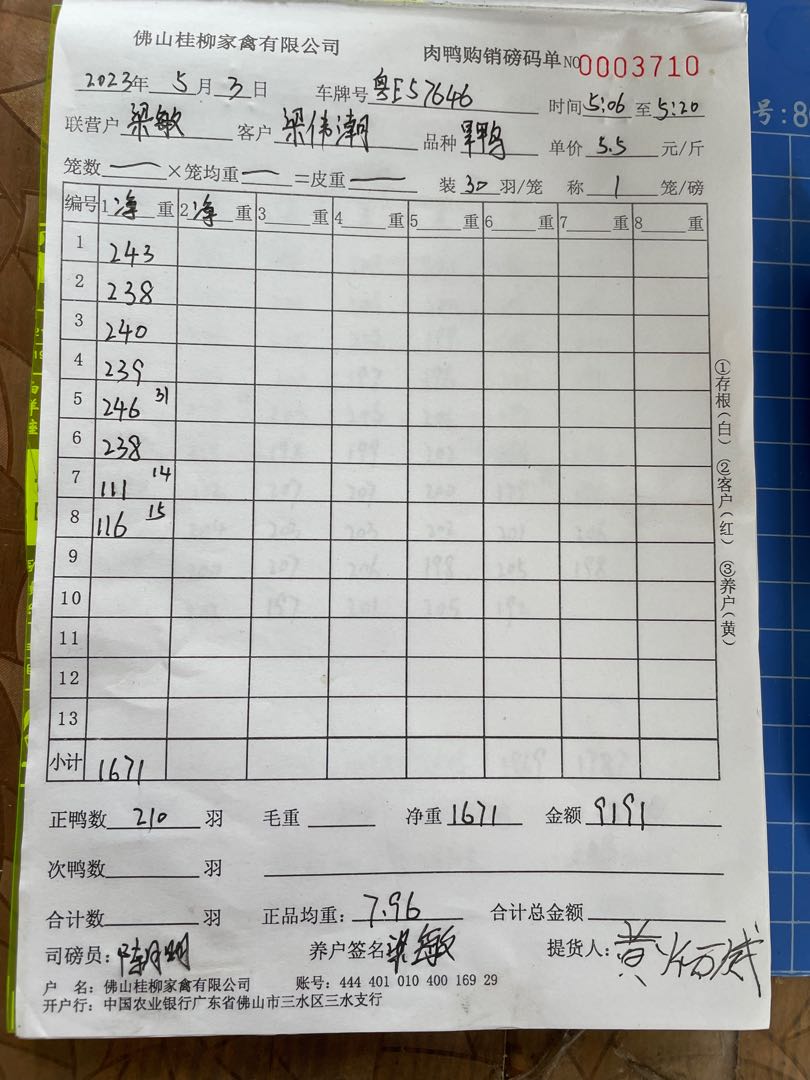 佛山桂柳家禽有限公司 肉鸭购销磅码单 NO 0003710
2023年 5月 3日 车牌号 粤E57646 时间 5:06 至 5:20
联营户 梁敏 客户 梁伟潮 品种 单价 5.5 元/斤
笼数 — ×笼均重 — =皮重 — 装 30 羽/笼 称 1 笼/磅
编号 1 净 重 2 净 重 3 重 4 重 5 重 6 重 7 重 8 重
1 243
2 238
3 240
4 239
5 246 31
6 238
7 111 14
8 116 15
9
10
11
12
13
小计 1671
①存根(白) ②客户(红) ③养户(黄)
正鸭数 210 羽 毛重 净重 1671 金额 9191
次鸭数 羽
合计数 羽 正品均重: 7.96 合计总金额
司磅员: 陈月明 养户签名 梁敏 提货人:
户 名: 佛山桂柳家禽有限公司 账号: 444 401 010 400 169 29
开户行: 中国农业银行广东省佛山市三水区三水支行
号:8